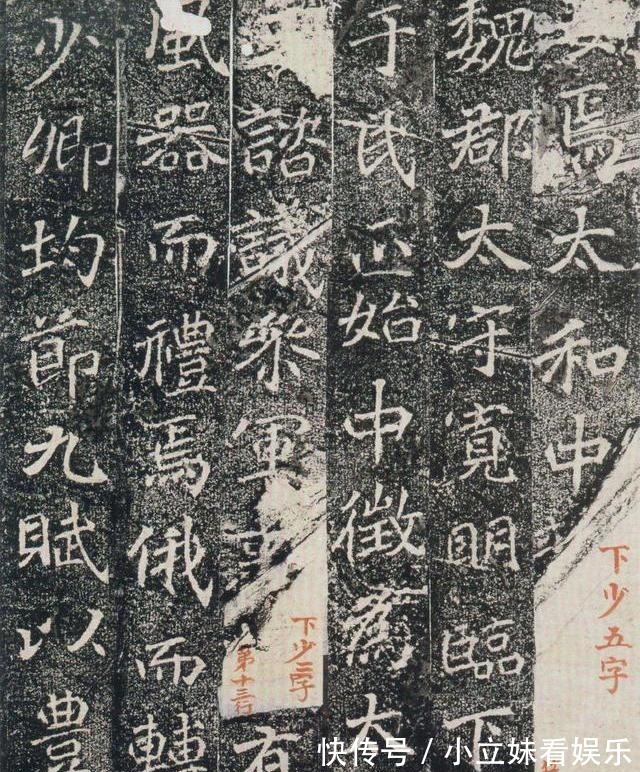 焉太和中
下少五字
魏郡太守寬明臨下
于氏正始中徵為太
諮議參軍事
下少三字
第十三行
有
風器而禮焉俄而轉
少卿均節九賦以豊
快传号/小立妹看娱乐